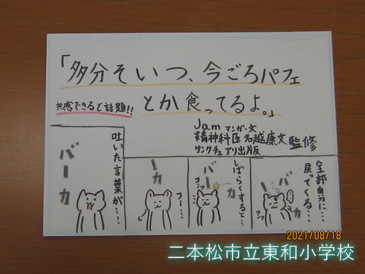 「多分そいつ、今ごろパフェ
とか食ってるよ。」
共感できると話題!!
Jam マンガ・文
精神科医 名越康文 監修
サンクチュアリ出版
吐いた言葉が…
バーカ
ーカ
フー…
しばらくすると…
全部自分に…
戻ってくる…
バーカ
2021/08/18
二本松市立東和小学校